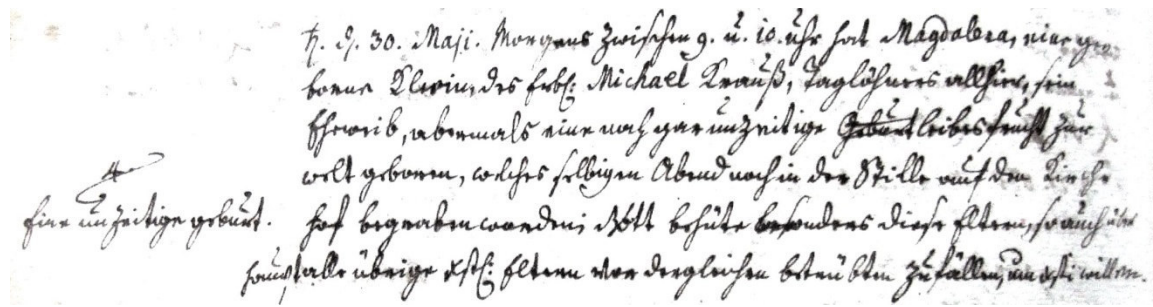 ħ. d. 30. Maji. Morgens zwischen 9. u. 10. uhr hat Magdalena, eine ge-
borne Kleinin, des Erbs: Michael Krauß, Taglöhners allhier, sein
Eheweib, abermals eine noch gar unzeitige Geburt leibesfrucht zur
welt geboren, welches selbigen Abend noch in der Stille auf den Kirch
Eine unzeitige geburt. hof begraben worden; Gott behüte besonders diese Eltern, so auch über
haupt alle übrige Xstl: Eltern vor dergleichen betrübten Zufällen, um Xsti willen.